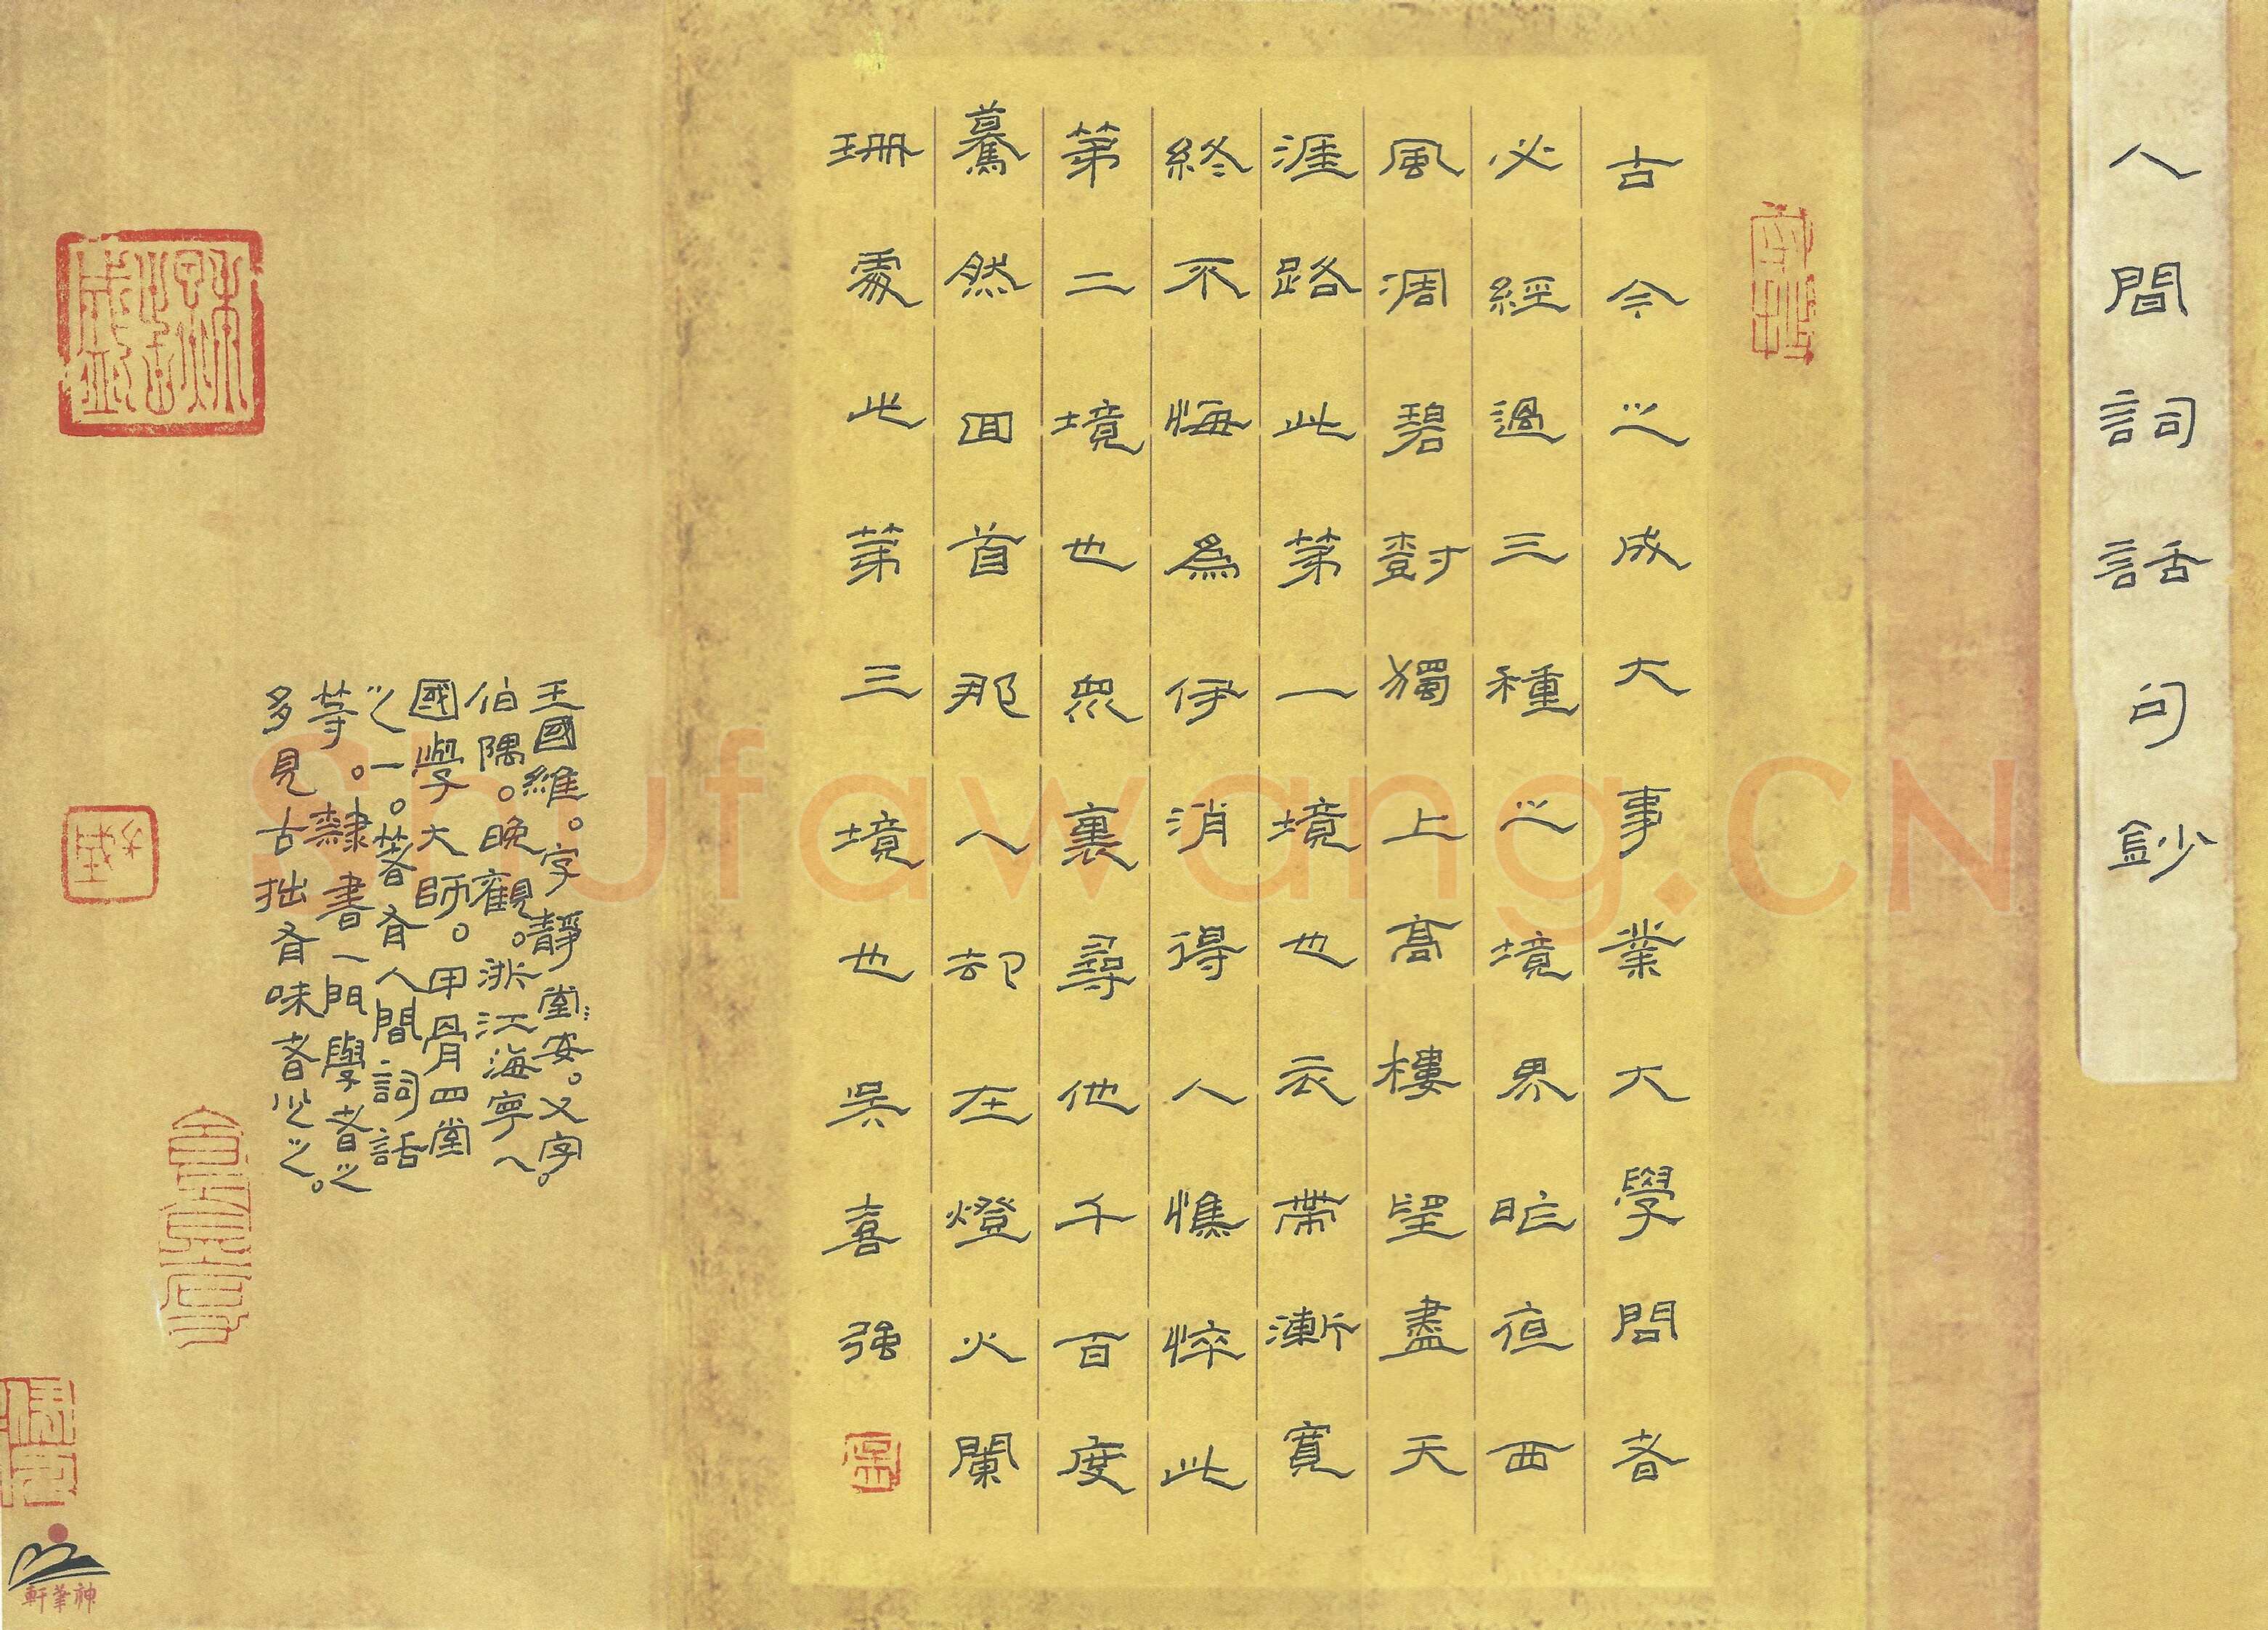 人間詞話句鈔
古今之成大事業大學問者
必經過三種之境界昨夜西
風凋碧樹獨上高樓望盡天
涯路此第一境也衣帶漸寬
終不悔爲伊消得人憔悴此
第二境也眾裏尋他千百度
驀然回首那人却在燈火闌
珊處此第三境也吳喜强
王國維。字靜堂安。又字。
伯隅。晚觀。浙江海寧人
國學大師。甲骨四堂
之一。著有人間詞話
等。隸書一門學者之
多見古拙有味者少之。
神筆軒
Shufawang.CN